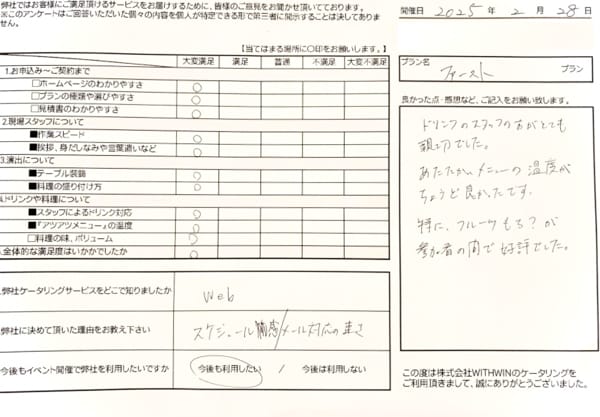 弊社ではお客様にご満足頂けるサービスをお届けするために、皆様のご意見をお聞かせ頂いております。
※このアンケートはご回答いただいた個々の内容を個人が特定できる形で第三者に開示することは決してありません。
【当てはまる場所に○印をお願いします。】
大変満足 満足 普通 不満足 大変不満足
1.お申込み〜ご契約まで
□ホームページのわかりやすさ ○
□プランの種類や選びやすさ ○
□見積書のわかりやすさ ○
2.現場スタッフについて
■作業スピード ○
■挨拶、身だしなみや言葉遣いなど ○
3.演出について
■テーブル装飾 ○
■料理の盛り付け方 ○
.ドリンクや料理について
■スタッフによるドリンク対応 ○
■『アツアツメニュー』の温度 ○
□料理の味、ボリューム ○
.全体的な満足度はいかがでしたか ○
.弊社ケータリングサービスをどこで知りましたか web
弊社に決めて頂いた理由をお教え下さい スケジュール /メール対応の速さ
今後もイベント開催で弊社を利用したいですか 今後も利用したい / 今後は利用しない
開催日 2025 年 2 月 28 日
プラン名 ファースト プラン
良かった点・感想など、ご記入をお願い致します。
ドリンクのスタッフの方がとても
親切でした。
あたたかいメニューの温度が
ちょうど良かったです。
特に、フルーツもち？が
参加者の間で好評でした。
この度は株式会社WITHWINのケータリングを
ご利用頂きまして、誠にありがとうございました。